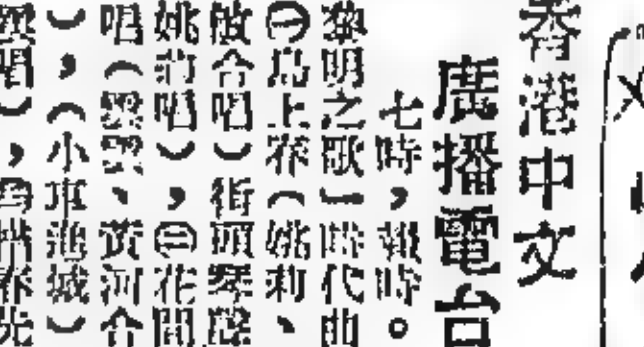 香港中文
廣播電台
七時，報時。
黎明之歌」時代曲
㊀島上春（姚莉、
敏合唱）街頭琴聲
姚莉唱），㊁花間
唱（、黃河合
），（小車進城）
唱），春光